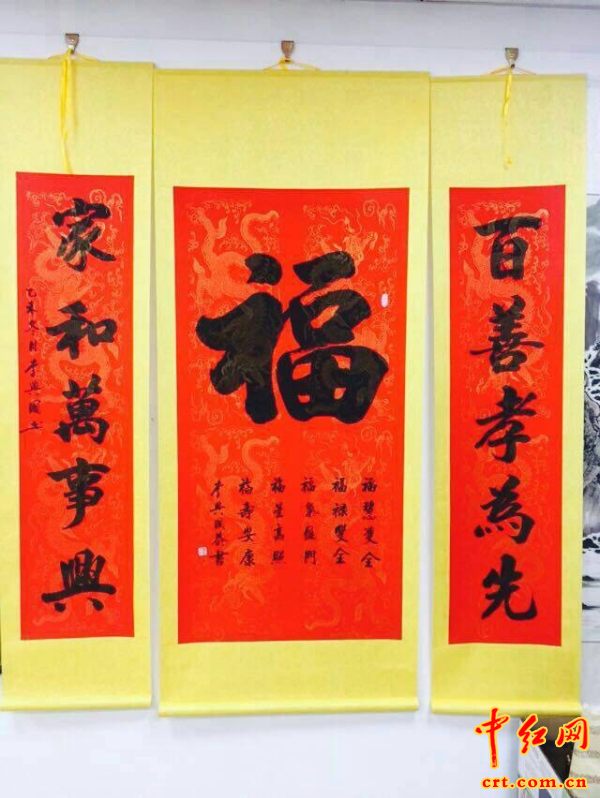 百善孝為先
福
福慧雙全
福祿雙全
福氣臨門
福星高照
福壽安康
李興國恭書
家和萬事興
乙未冬月李興國書
中红网
crt.com.cn